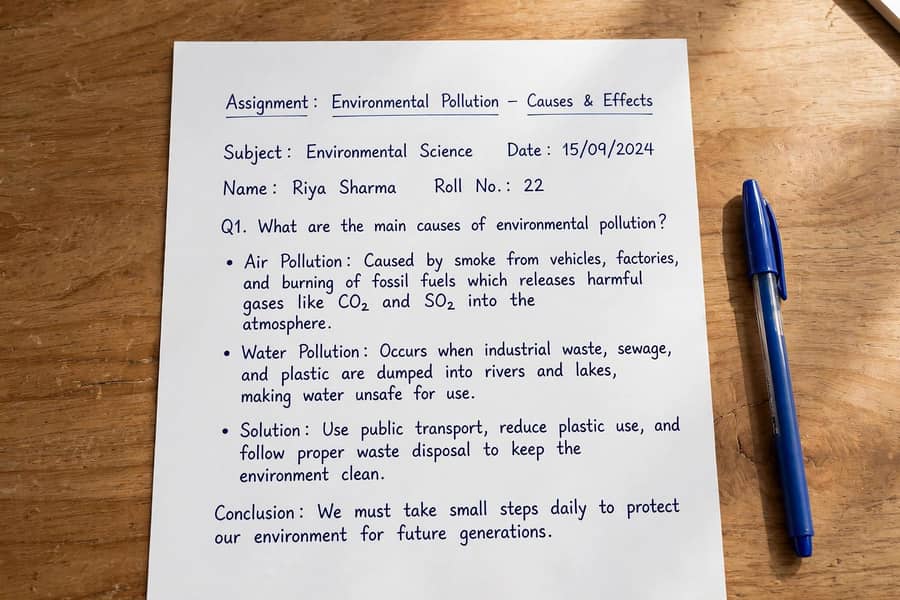 Assignment : Environmental Pollution – Causes & Effects
Subject : Environmental Science Date : 15/09/2024
Name : Riya Sharma Roll No. : 22
Q1. What are the main causes of environmental pollution?
• Air Pollution : Caused by smoke from vehicles, factories,
and burning of fossil fuels which releases harmful
gases like CO₂ and SO₂ into the
atmosphere.
• Water Pollution : Occurs when industrial waste, sewage,
and plastic are dumped into rivers and lakes,
making water unsafe for use.
• Solution : Use public transport, reduce plastic use, and
follow proper waste disposal to keep the
environment clean.
Conclusion : We must take small steps daily to protect
our environment for future generations.